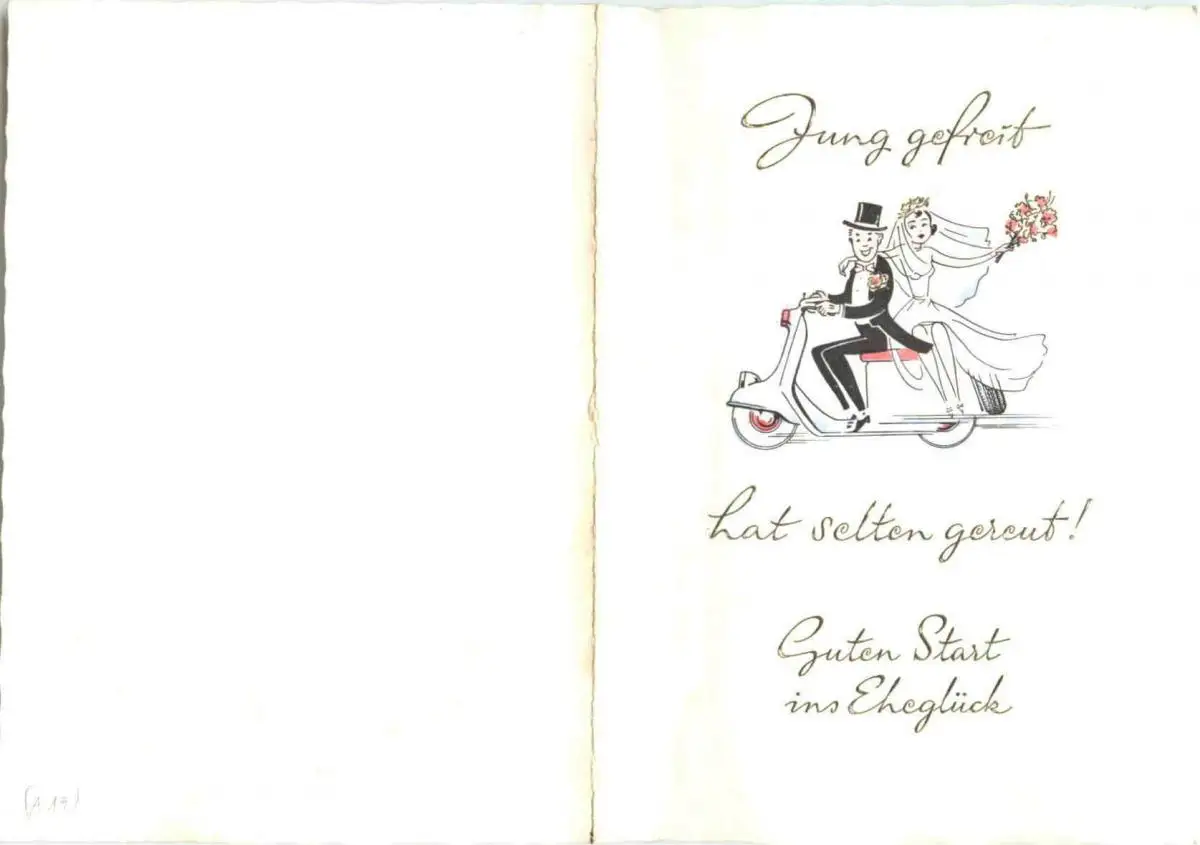 Jung gefreit
hat selten gereut!
Guten Start
ins Eheglück